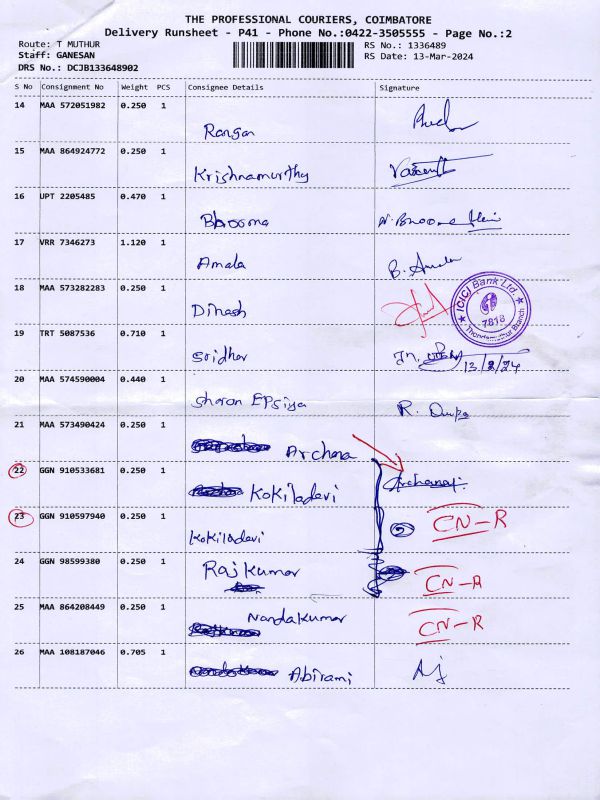 THE PROFESSIONAL COURIERS, COIMBATORE
Delivery Runsheet - P41 - Phone No.:0422-3505555 - Page No.:2
Route: T MUTHUR RS No.: 1336489
Staff: GANESAN RS Date: 13-Mar-2024
DRS No.: DCJB133648902
S No Consignment No Weight PCS Consignee Details Signature
14 MAA 572051982 0.250 1
Rangan
15 MAA 864924772 0.250 1
Krishnamurthy Vasanth
16 UPT 2205485 0.470 1
Bhooma
17 VRR 7346273 1.120 1
Amala B. Amala
18 MAA 573282283 0.250 1
Dinash
ICICI Bank Ltd.
7818
19 TRT 5087536 0.710 1
Sridhar 13/2/24
20 MAA 574590004 0.440 1
Sharon EPsiya R.
21 MAA 573490424 0.250 1
Archana
22 GGN 910533681 0.250 1 Archana
KoKiladevi
23 GGN 910597940 0.250 1 CN-R
KoKiladevi
24 GGN 98599380 0.250 1
Rajkumar CN-R
25 MAA 864208449 0.250 1
Nandakumar CN-R
26 MAA 108187046 0.705 1
Abirami